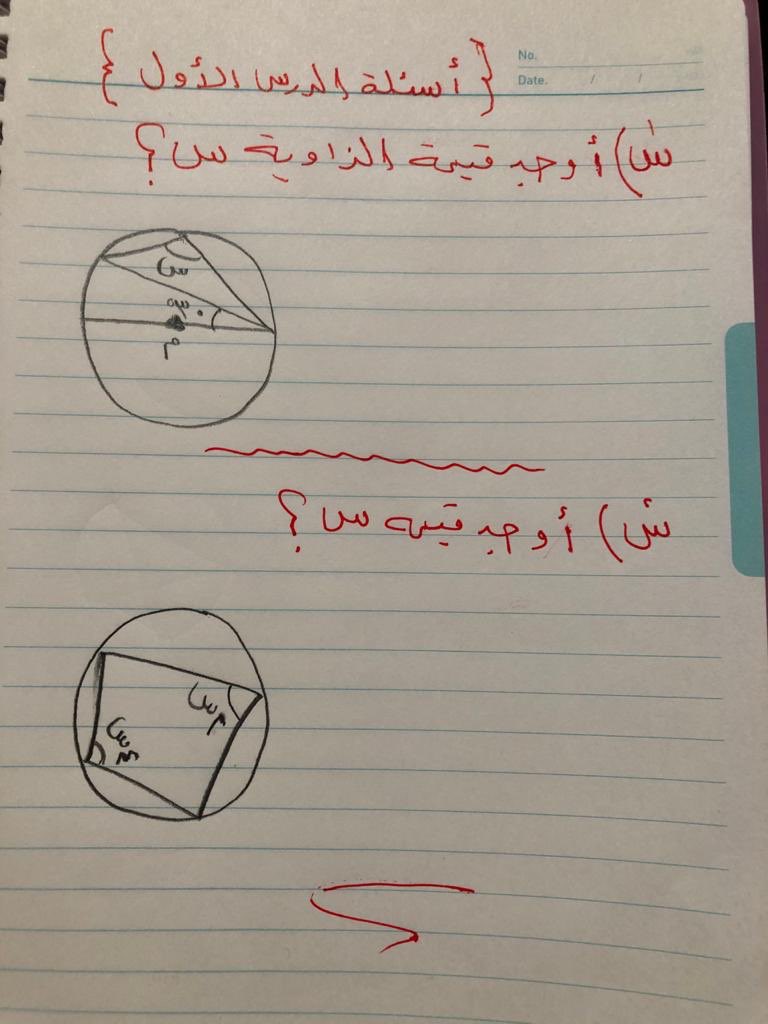 No.
Date. / /
{ أسئلة الدرس الأول }
س١) أوجد قيمة الزاوية س؟
س
م
س٢) أوجد قيمة س؟
٢س
٤س